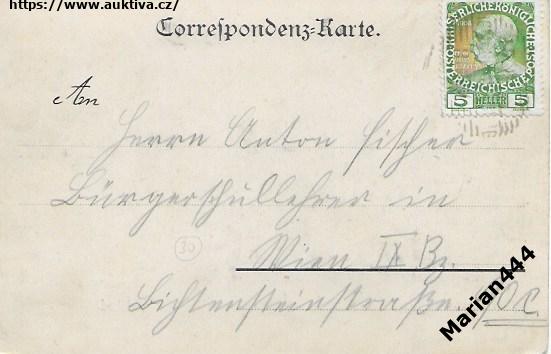 https://www.auktiva.cz/
Correspondenz-Karte.
KAISERLICHE KÖNIGLICHE
ÖSTERREICHISCHE POST
5 HELLER 5
An
Herrn Anton Fischer
Bürgerschullehrer in
30
Wien IX Bz.
Lichtensteinstraße
Marian444